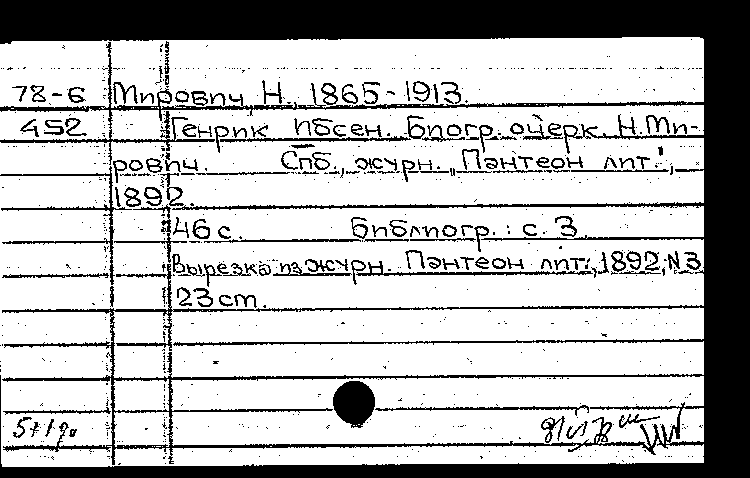 78-6 Мирович, Н. 1865-1913.
452 Генрик Ибсен. Биогр. очерк. Н. Ми-
рович. Спб., журн. „Пантеон лит.",
1892.
46 с. Библиогр.: с. 3
Вырезка из журн. Пантеон лит., 1892, N3
23 cm.